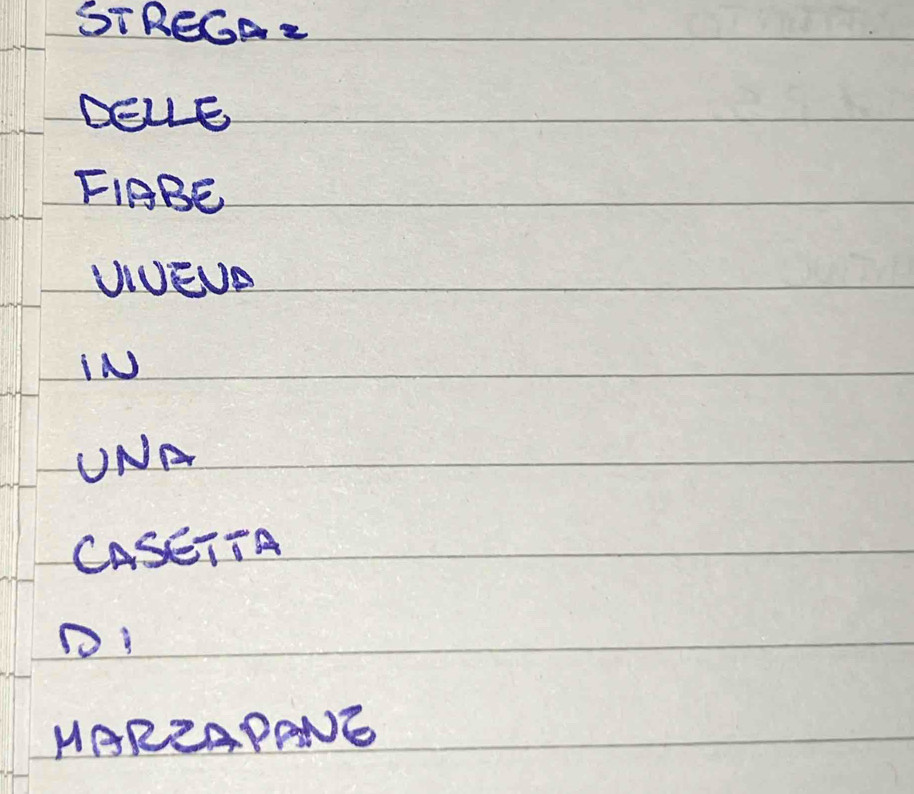 STREGA=
DELLE
FIABE
VIVEVA
IN
UNA
CASETTA
DI
MARZAPANE